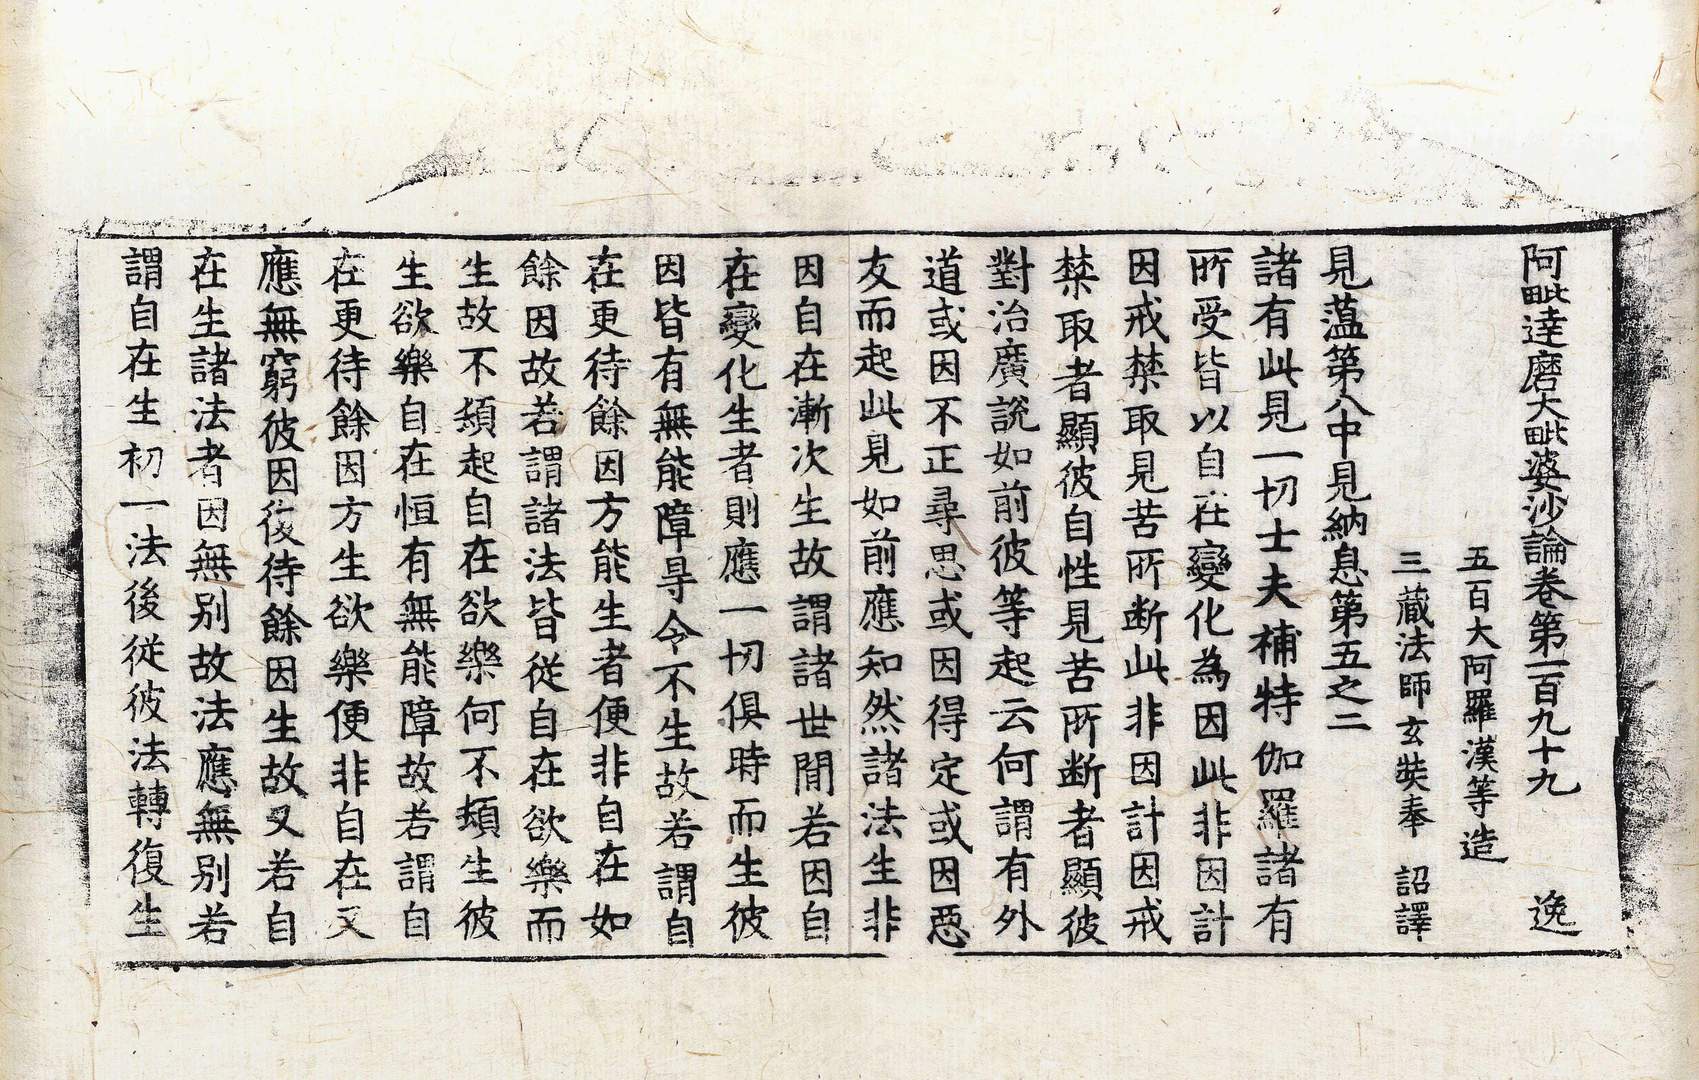 阿毗達磨大毗婆沙論卷第一百九十九 逸
五百大阿羅漢等造
三藏法師玄奘奉 詔譯
見蘊第八中見納息第五之二
諸有此見一切士夫補特伽羅諸有
所受皆以自在變化為因此非因計
因戒禁取見苦所断此非因計因戒
禁取者顯彼自性見苦所断者顯彼
對治廣說如前彼等起云何謂有外
道或因不正尋思或因得定或因惡
友而起此見如前應知然諸法生非
因自在漸次生故謂諸世間若因自
在變化生者則應一切俱時而生彼
因皆有無能障㝵令不生故若謂自
在更待餘因方能生者便非自在如
餘因故若謂諸法皆從自在欲樂而
生故不頓起自在欲樂何不頓生彼
生欲樂自在恒有無能障故若謂自
在更待餘因方生欲樂便非自在又
應無窮彼因復待餘因生故又若自
在生諸法者因無別故法應無別若
謂自在生初一法後從彼法轉復生